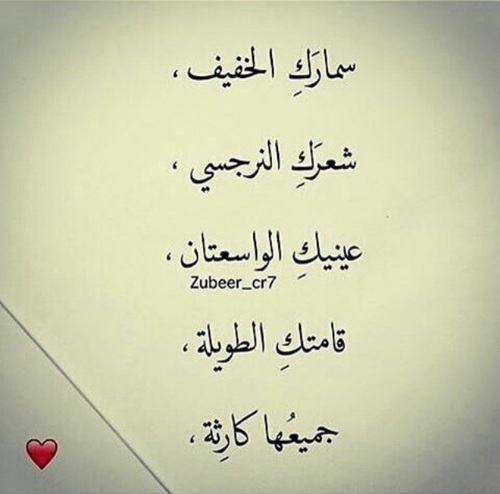 سمارَكِ الخفيف ،
شعرَكِ النرجسي ،
عينيكِ الواسعتان ،
Zubeer_cr7
قامتكِ الطويلة ،
جميعُها كارِثة ،